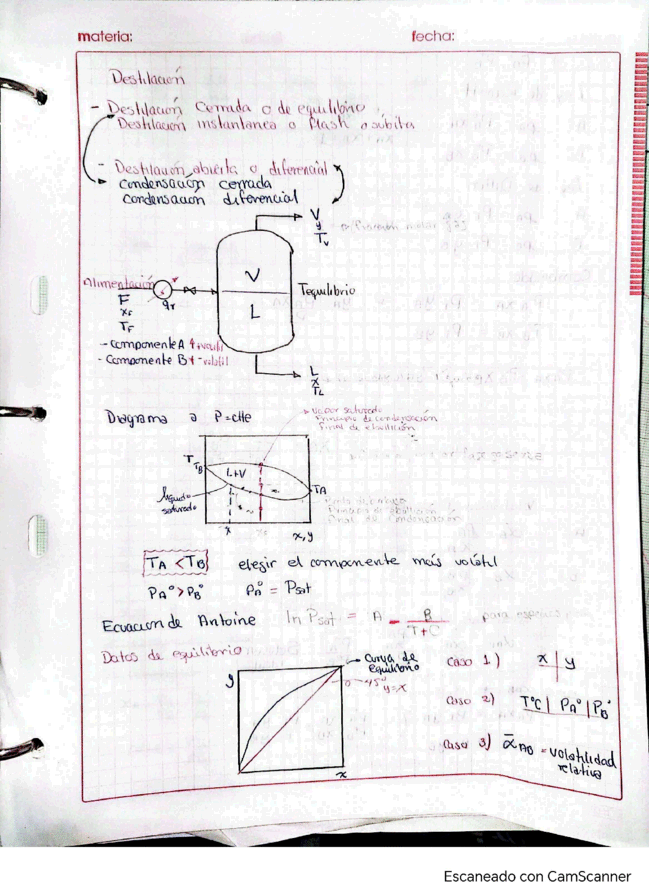 materia: fecha:
Destilación
- Destilación Cerrada o de equilibrio,
Destilación instantanea o flash o súbita
- Destilación abierta o diferencial
condensación cerrada
condensación diferencial
V
y
Tv
Alimentación
F
xF
TF
qr
V
L
Tequilibrio
- Componente A + volatil
- Componente B - volatil
L
x
TL
Diagrama a P=cte
vapor saturado
Principio de condensación
Final de ebullición
T
TB
L+V
TA
líquido saturado
Final de condensación
x
xF
x,y
TA < TB elegir el componente más volátil
PA° > PB° PA° = Psat
Ecuación de Antoine ln Psat = A - B / T+C para
Datos de equilibrio
y
Curva de equilibrio
45° y=x
x
Caso 1) x | y
Caso 2) T°C | PA° | PB°
Caso 3) ᾱAB = volatilidad relativa
Escaneado con CamScanner